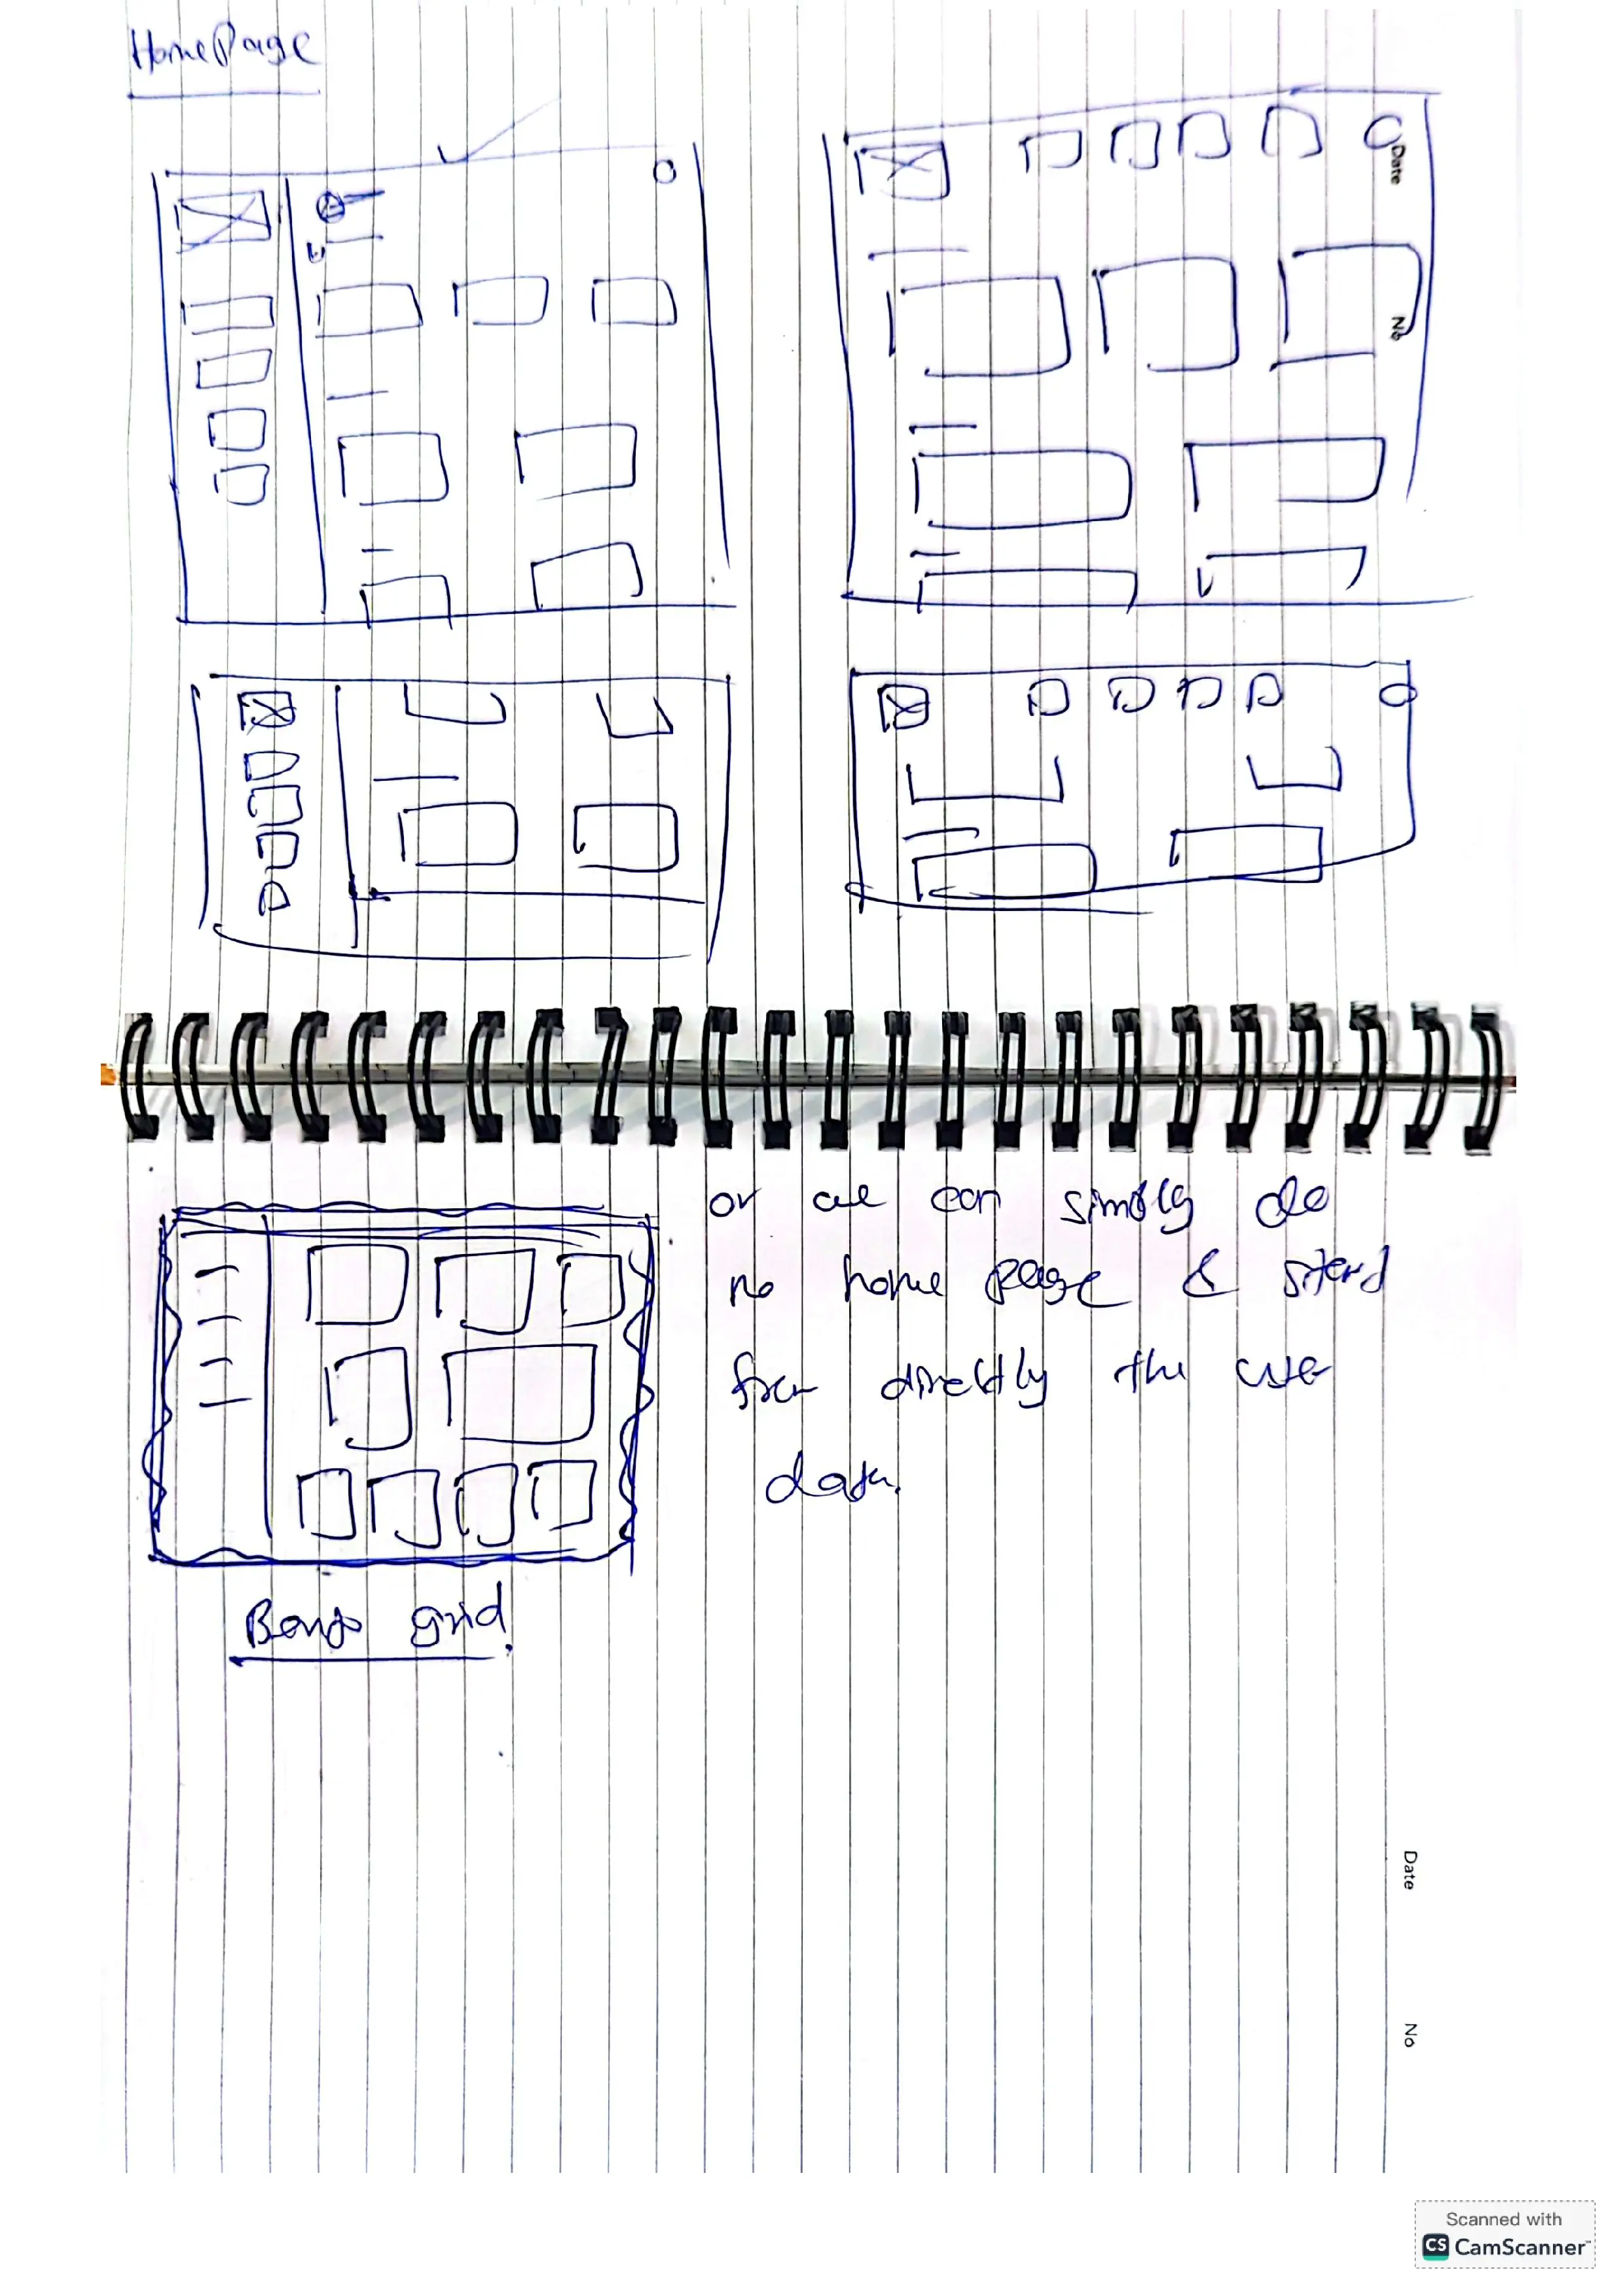 HomePage
Date
No
or we can simply do
no home page & start
from directly the user
data.
Bento grid.
Date
No
Scanned with
CS CamScanner